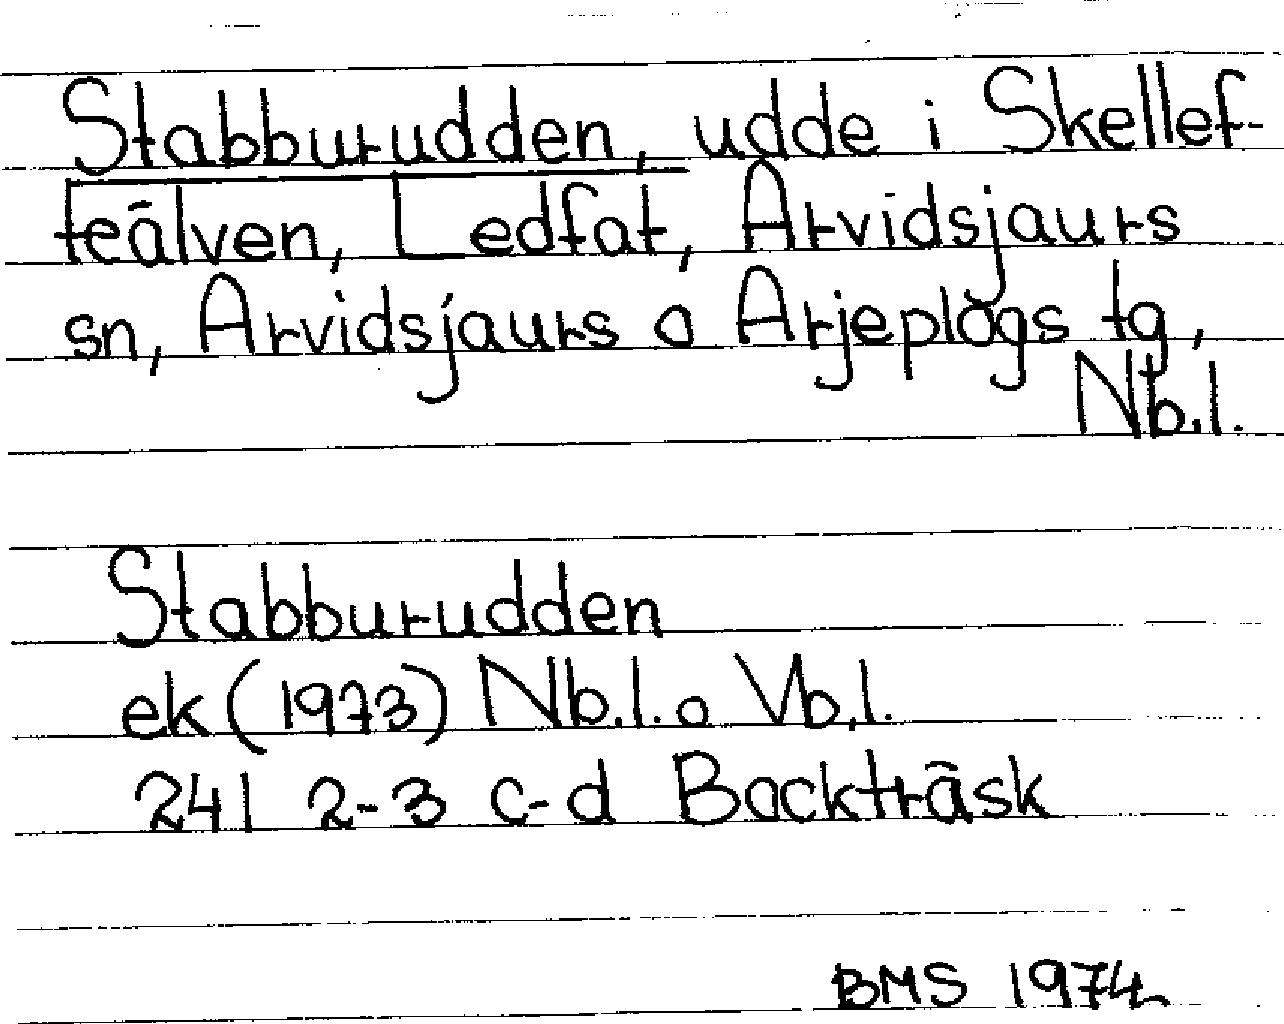 Stabburudden, udde i Skellef-
teälven, Ledfat, Arvidsjaurs
sn, Arvidsjaurs o Arjeplogs tg,
Nb.l.
Stabburudden
ek (1973) Nb.l. o Vb.l.
241 2-3 c-d Backträsk
BMS 1974